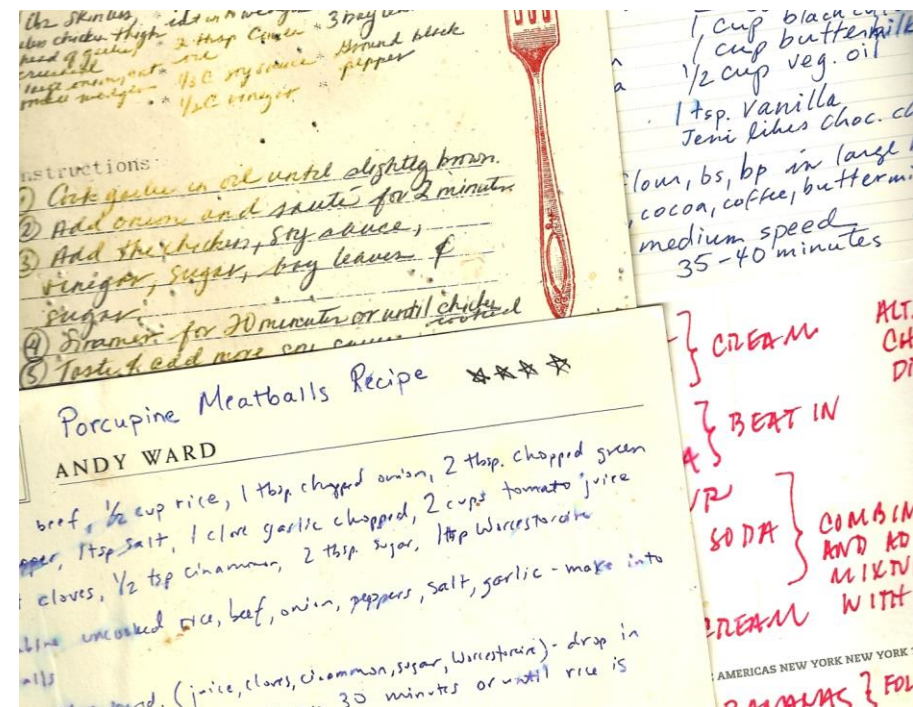 lbs skinless,
chicken thigh
3 bay
2 tbsp
oil
ground black
pepper
1/3 C soy sauce
1/2 C vinegar
nstructions:
① Cook garlic in oil until slightly brown.
② Add onion and sauté for 2 minutes
③ Add the chicken, soy sauce,
vinegar, sugar, bay leaves &
sugar.
④ Simmer for 20 minutes or until chicken
cooked
⑤ Taste & add more soy sauce
1 cup black
1 cup buttermilk
1/2 cup veg. oil
1 tsp. vanilla
Jeni likes choc. ch
flour, bs, bp in large
cocoa, coffee, buttermi
medium speed
35-40 minutes
Porcupine Meatballs Recipe ★★★★
ANDY WARD
beef, 1/2 cup rice, 1 tbsp. chopped onion, 2 tbsp. chopped green
pper, 1 tsp salt, 1 clove garlic chopped, 2 cups tomato juice
cloves, 1/2 tsp cinammon, 2 tbsp. sugar, 1 tsp Worcestorcire
uncooked rice, beef, onion, peppers, salt, garlic - make into
alls
(juice, cloves, cinammon, sugar, Worcestorcire) - drop in
30 minutes or until rice is
} CREAM
ALT
CH
} BEAT IN
SODA } COMBIN
AND AD
MIXTU
WITH
CREAM
AMERICAS NEW YORK NEW YORK
BANANAS } FOL